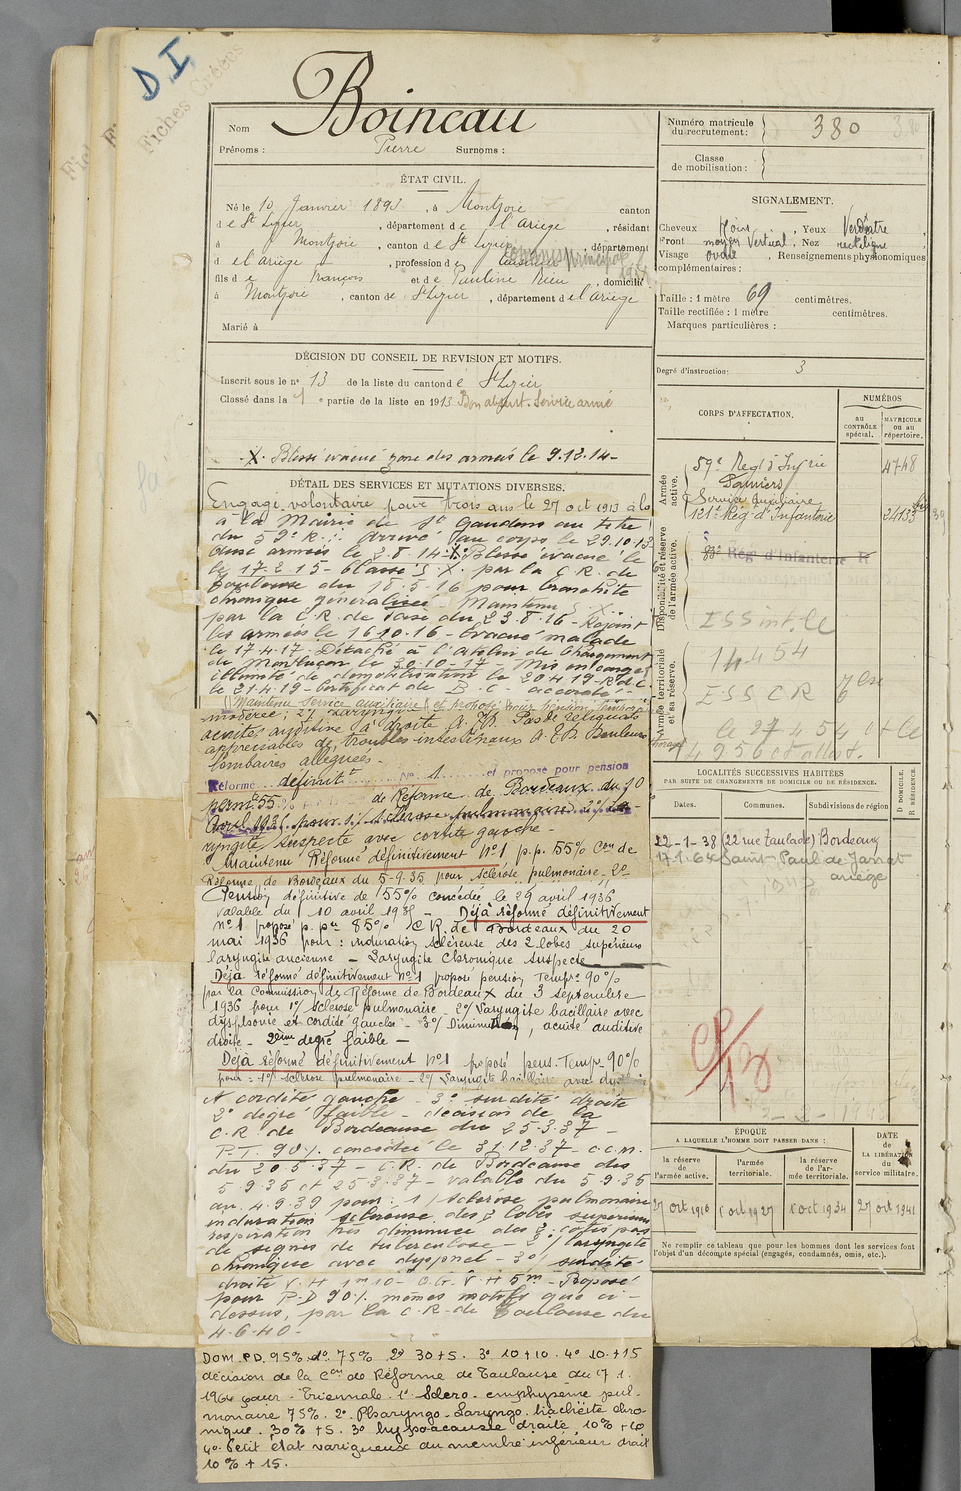 D I
Fiches Créées
Nom Boineau
Prénoms : Pierre Surnoms :
ÉTAT CIVIL.
Né le 10 Janvier 1893, à Montjoie canton
d e St Lizier, département d e l'Ariège, résidant
à Montjoie, canton d e St Lizier, département
d e l'Ariège, profession d
fils d e François et d e Pauline Rieu, domicilié
à Montjoie, canton de St Lizier, département d e l'Ariège
Marié à
DÉCISION DU CONSEIL DE REVISION ET MOTIFS.
Inscrit sous le n° 13 de la liste du canton d e St Lizier
Classé dans la 1 e partie de la liste en 1913 Bon absent. Service armé
.X. Blessé évacué zone des armées le 9.12.14 -
DÉTAIL DES SERVICES ET MUTATIONS DIVERSES.
Engagé volontaire pour trois ans le 27 oct 1913
à la Mairie de St Gaudens au titre
du 59e R.I. Arrivé au corps le 29.10.13
aux armées le 2.8.14 .X. Blessé évacué le
le 17-2-15 - Classé S.X. par la C.R. de
Toulouse du 18.5.16 pour bronchite
chronique généralisée - Maintenu S.X.
par la C.R. de du 23.8.16 - Rejoint
les armées le 16.10.16 - Evacué malade
le 17.4.17. Détaché à l'atelier de Chargement
de Montluçon le 20-10-17 - Mis en congé
illimité de démobilisation le 20.4.19
le 21.4.19 - Certificat de B.C. accordé -
(Maintenu service auxiliaire et proposé pour pension
modérée; 2° Laryngite
acuité auditive à droite A.B. Pas de reliquats
appréciables de troubles intestinaux A.B. Douleurs
lombaires alléguées.
Réformé définitt N° 1 et proposé pour pension
permte 55% de Réforme de Bordeaux du 10
Avril 1935 pour: 1° sclérose pulmonaire 2° La-
ryngite suspecte avec cordite gauche -
Maintenu Réformé définitivement N°1 p.p. 55% Con de
Réforme de Bordeaux du 5-9.35 pour sclérose pulmonaire - 2°
Pension définitive de 55% concédée le 29 avril 1936
valable du 10 avril 1935 - Déjà réformé définitivement
n°1 proposé p. pte 85% C.R. de Bordeaux du 20
mai 1936 pour : induration scléreuse des 2 lobes supérieurs
laryngite ancienne - Laryngite chronique suspecte
Déjà réformé définitivement N°1 proposé pension tempre 90%
par la Commission de Réforme de Bordeaux du 3 septembre
1936 pour 1°/ Sclérose pulmonaire - 2°/ Laryngite bacillaire avec
dysphonie et cordite gauche - 3°/ Diminution acuité auditive
droite - 2ème degré faible -
Déjà réformé définitivement N°1 proposé pens. Tempre 90%
pour: 1°/ sclérose pulmonaire - 2°/ Laryngite bacillaire avec
et cordite gauche - 3° surdité droite
2° degré faible - décision de la
C.R. de Bordeaux du 25.3.37 -
P.T. 90% concédée le 31.12.37 - c.c.m.
du 20.5.37 - C.R. de Bordeaux des
5.9.35 et 25.3.37 - valable du 5.9.35
au 4.9.39 pour: 1/ sclérose pulmonaire
induration scléreuse des 2 lobes supérieurs
respiration très diminuée des 2 côtés pas
de signes de tuberculose - 2°/ laryngite
chronique avec dysphonie - 3°/ surdité
droite V.H 1m10 - O.G. V.H 5m - Proposé
pour P.D 90% mêmes motifs que ci-
dessus, par la C.R. de Toulouse du
4-6-40 -
DOM. P.D. 95% 1° 75% 2° 30+5. 3° 10+10. 4° 10+15
décision de la Con de Réforme de Toulouse du 7.1.
1964 pour - Triennale. 1° Scléro-emphysème pul-
monaire 75%. 2° Pharyngo-Laryngo-trachéite chro-
nique. 30%+5. 3° hypoacousie droite 10%+10
4° Petit état variqueux du membre inférieur droit
10%+15.
Numéro matricule
du recrutement : 380
Classe
de mobilisation :
SIGNALEMENT.
Cheveux Noirs, Yeux Verdâtre,
Front moyen Vertical, Nez rectiligne
Visage ovale, Renseignements physionomiques
complémentaires :
Taille : 1 mètre 69 centimètres.
Taille rectifiée : 1 mètre centimètres.
Marques particulières :
Degré d'instruction : 3
CORPS D'AFFECTATION.
NUMÉROS
au CONTRÔLE spécial.
MATRICULE ou au répertoire.
Armée active.
59e Regt d'Infrie 4748
Pamiers
Service Auxiliaire
121e Rég. d'Infanterie 24133 bis
Disponibilité et réserve de l'armée active.
83e Rég. d'Infanterie
ESS int. le
Armée territoriale et sa réserve.
14454
ESS CR
LOCALITÉS SUCCESSIVES HABITÉES
PAR SUITE DE CHANGEMENTS DE DOMICILE OU DE RÉSIDENCE.
Dates. Communes. Subdivisions de région
D DOMICILE.
R RÉSIDENCE.
22-1-38 (22 rue Taulade) Bordeaux
17.1.64 Saint-Paul de Jarrat
ariège
CP/13
ÉPOQUE
A LAQUELLE L'HOMME DOIT PASSER DANS :
la réserve de l'armée active.
l'armée territoriale.
la réserve de l'armée territoriale.
DATE de LA LIBÉRATION du service militaire.
27 oct 1916 1 oct 1927 1 oct 1934 27 oct 1941
Ne remplir ce tableau que pour les hommes dont les services font
l'objet d'un décompte spécial (engagés, condamnés, omis, etc.).